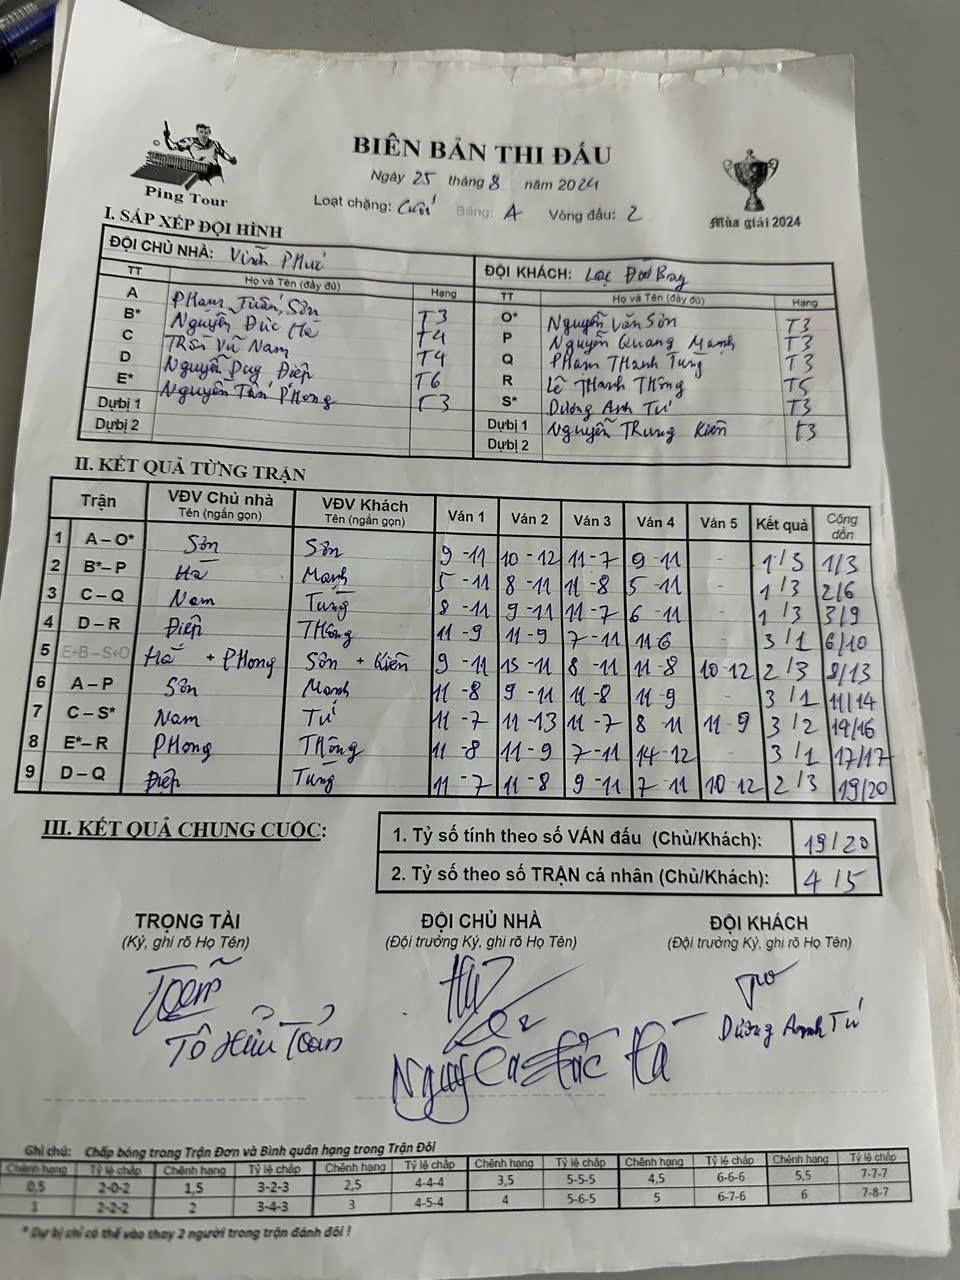 BIÊN BẢN THI ĐẤU
Ping Tour
Ngày 25 tháng 8 năm 2024
Loạt chặng: Cuối Bảng: A Vòng đấu: 2
Mùa giải 2024
I. SẮP XẾP ĐỘI HÌNH
ĐỘI CHỦ NHÀ: Vĩnh Phúc
TT Họ và Tên (đầy đủ) Hạng
A Phạm Tuấn Sơn T3
B* Nguyễn Đức Hà T4
C Trần Vũ Nam T4
D Nguyễn Duy Điệp T6
E* Nguyễn Tấn Phong T3
Dự bị 1
Dự bị 2
ĐỘI KHÁCH: Lạc Đà Bay
TT Họ và Tên (đầy đủ) Hạng
O* Nguyễn Văn Sơn T3
P Nguyễn Quang Mạnh T3
Q Phạm Thanh Tùng T3
R Lê Thanh Thông T5
S* Dương Anh Tú T3
Dự bị 1 Nguyễn Trung Kiên T3
Dự bị 2
II. KẾT QUẢ TỪNG TRẬN
Trận VĐV Chủ nhà Tên (ngắn gọn) VĐV Khách Tên (ngắn gọn) Ván 1 Ván 2 Ván 3 Ván 4 Ván 5 Kết quả Cộng dồn
1 A – O* Sơn Sơn 9 - 11 10 - 12 11 - 7 9 - 11 - 1 / 3 1/3
2 B* – P Hà Mạnh 5 - 11 8 - 11 11 - 8 5 - 11 - 1 / 3 2/6
3 C – Q Nam Tùng 8 - 11 9 - 11 11 - 7 6 - 11 - 1 / 3 3/9
4 D – R Điệp Thông 11 - 9 11 - 9 7 - 11 11 - 6 3 / 1 6/10
5 E+B – S+O Hà + Phong Sơn + Kiên 9 - 11 13 - 11 8 - 11 11 - 8 10 - 12 2 / 3 8/13
6 A – P Sơn Mạnh 11 - 8 9 - 11 11 - 8 11 - 9 - 3 / 1 11/14
7 C – S* Nam Tú 11 - 7 11 - 13 11 - 7 8 - 11 11 - 9 3 / 2 14/16
8 E* – R Phong Thông 11 - 8 11 - 9 7 - 11 14 - 12 - 3 / 1 17/17
9 D – Q Điệp Tùng 11 - 7 11 - 8 9 - 11 7 - 11 10 - 12 2 / 3 19/20
III. KẾT QUẢ CHUNG CUỘC:
1. Tỷ số tính theo số VÁN đấu (Chủ/Khách): 19/20
2. Tỷ số theo số TRẬN cá nhân (Chủ/Khách): 4/5
TRỌNG TÀI
(Ký, ghi rõ Họ Tên)
Tô Hữu Toản
ĐỘI CHỦ NHÀ
(Đội trưởng Ký, ghi rõ Họ Tên)
Nguyễn Đức Hà
ĐỘI KHÁCH
(Đội trưởng Ký, ghi rõ Họ Tên)
Dương Anh Tú
Ghi chú: Chấp bóng trong Trận Đơn và Bình quân hạng trong Trận Đôi
Chênh hạng Tỷ lệ chấp Chênh hạng Tỷ lệ chấp Chênh hạng Tỷ lệ chấp Chênh hạng Tỷ lệ chấp Chênh hạng Tỷ lệ chấp Chênh hạng Tỷ lệ chấp
0,5 2-0-2 1,5 3-2-3 2,5 4-4-4 3,5 5-5-5 4,5 6-6-6 5,5 7-7-7
1 2-2-2 2 3-4-3 3 4-5-4 4 5-6-5 5 6-7-6 6 7-8-7
* Dự bị chỉ có thể vào thay 2 người trong trận đánh đôi !